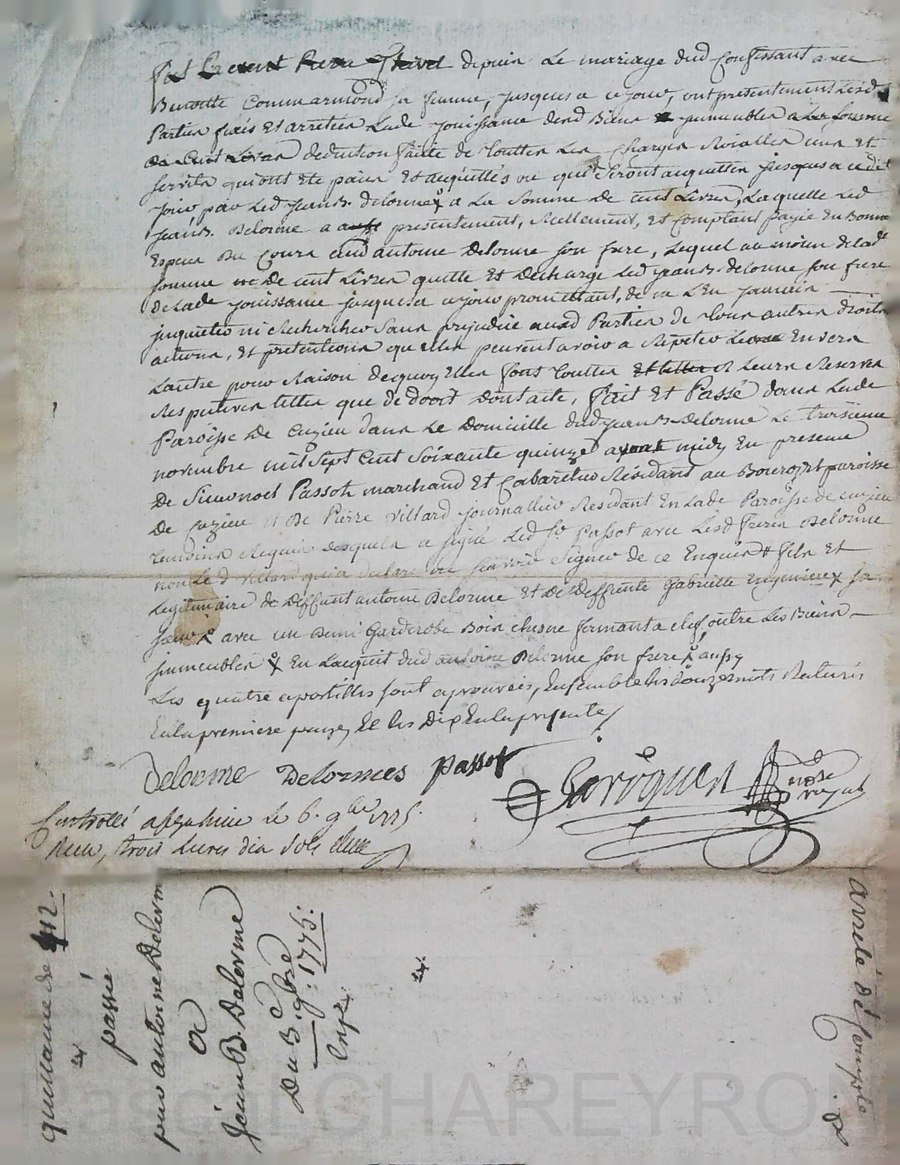 depuis Le mariage dud Confessant avec
Benoitte Commarmond sa femme, jusques a ce jour, ont presentement Lesd
Parties fixés Et arretée Lade jouissance desd Biens jmmeubles a La somme
de Cent Livres deduction faitte de touttes Les Charges Roialles cens Et
servis qui ont eté paiés Et acquittés ou qui seront acquittés jusques a cedit
jour par Led Jean B. delorme a La somme de cent Livres, La quelle Led
Jean B. Delorme a presentement, Réellement, Et Comptant payée En bonne
Espece du Cours aud antoine Delorme son frere, Lequel au moien de lade
somme de cent Livres quitte Et decharge Led Jean B. delorme son frere
de Lade jouissance jusques a ce jour promettant, de ne L'en jamais
jnquietter ni Rechercher sans prejudice ausd Parties de tous autres droits
actions, Et pretentions qu'elles peuvent avoir a Repeter L'une Envers
Lautre pour Raison dequoy Elles font touttes Leurs Reserves
Respectives telles que de droit Dont acte, fait Et Passé dans Lade
Paroisse De cuzieu dans Le Domicille dud Jean B. Delorme Le troisieme
novembre mil Sept Cent Soixante quinze avant midy En presence
De Sieur noel Passot marchand Et Cabaretier Résidant au Bourg Et paroisse
De cuzieu Et De Pierre Villard journallier Residant En Lade Paroisse de cuzieu
temoins Requis desquels a signé Led Sr Passot avec Lesd freres Delorme
non Led Villard qui a declaré ne scavoir signer de ce Enquis # fils Et
Legitimaire de deffunt antoine Delorme Et de deffunte Gabrielle
avec un Demi Garderobe Bois chesne fermant a clef, outre Les Biens
jmmeubles En L'acquit dud antoine Delorme son frere aussy
Les quatre apostilles sont aprouvées, Ensemble les douze mots Raturés
En la premiere page, Et les Dix En la presente
Delorme Delormes Passot
Controllé a le 6. 9bre 1775.
Reçu, trois Livres dix sols
quittance de 112.
passé
par antoine Delorme
a
Jean B. Delorme
Du 3. 9bre 1775:
Arrêté de Compte
Pascal CHAREYRON